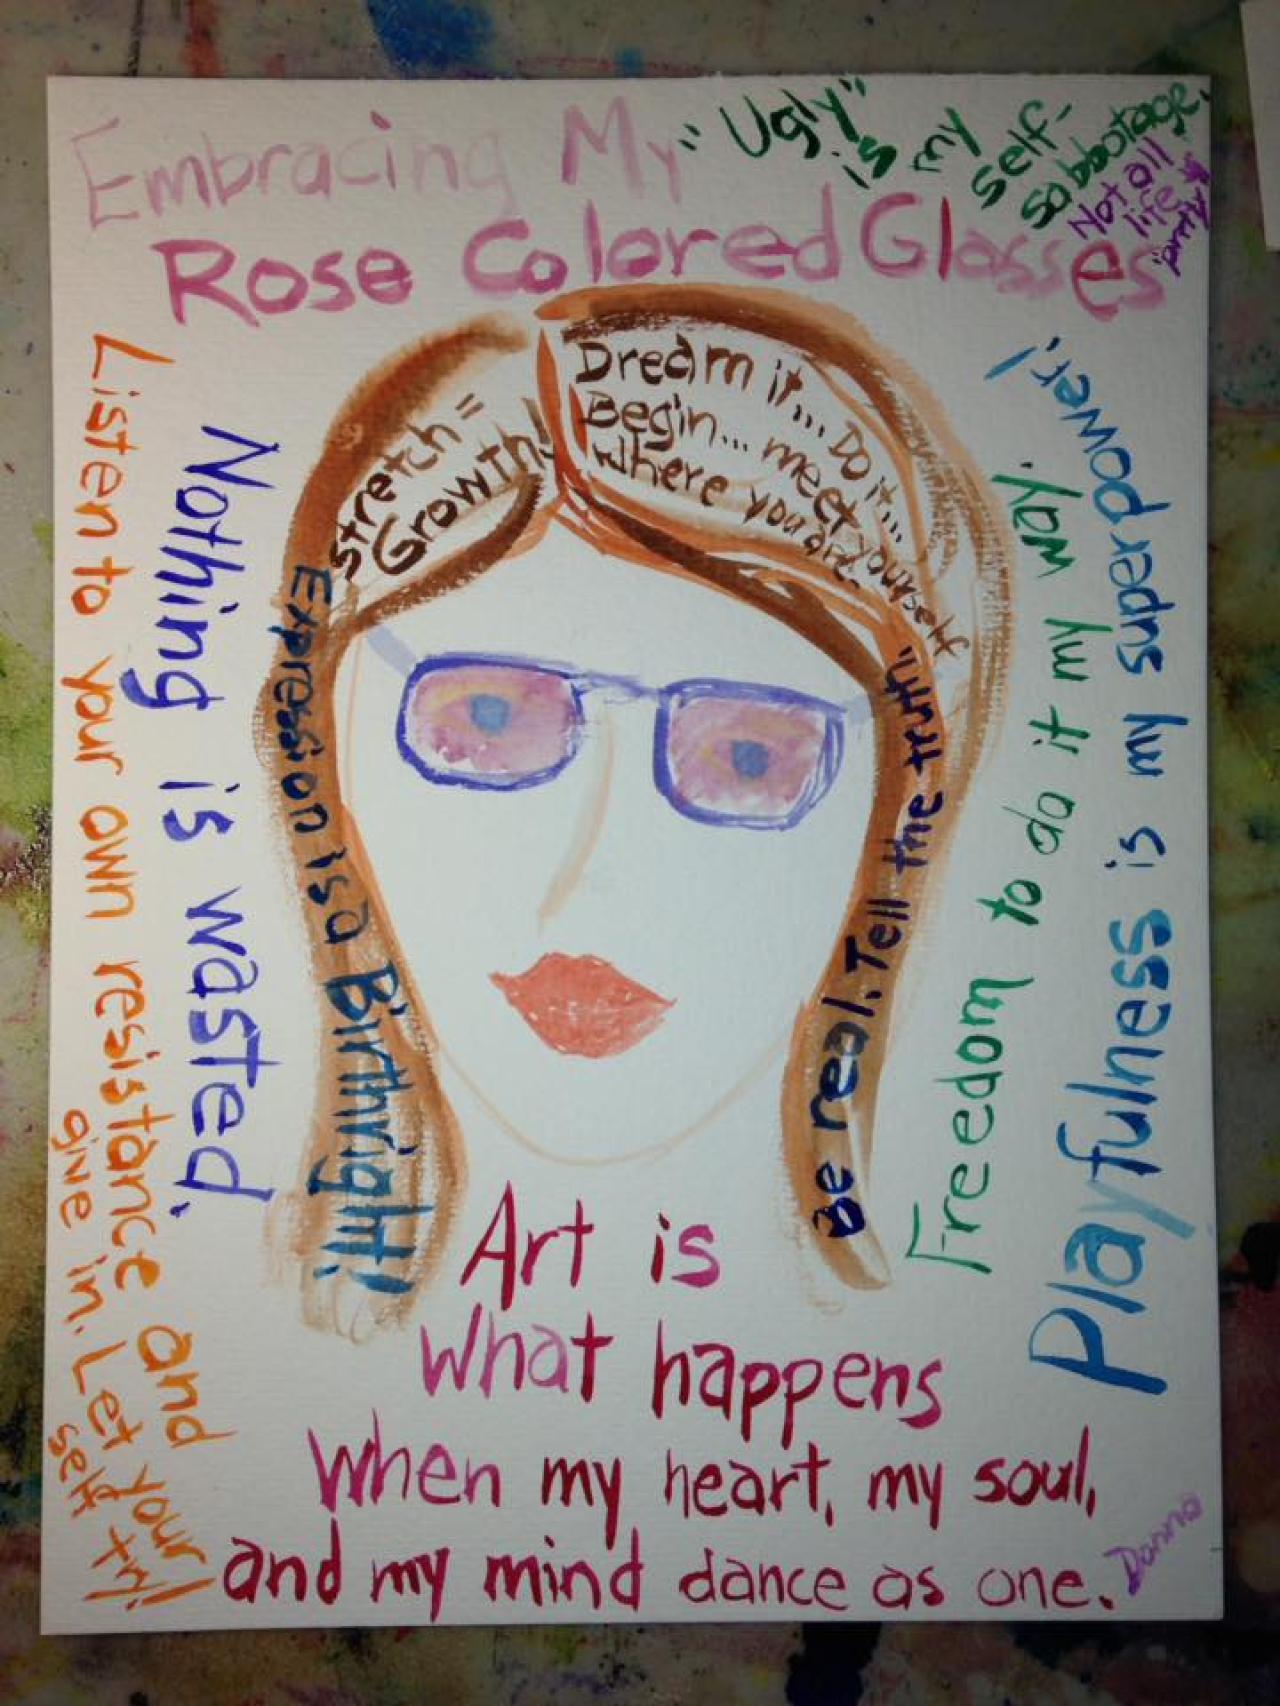 Embracing My
Rose Colored Glasses
"Ugly"
is my
self-
sabotage.
Not all
life
Dream it... Do it...
Begin... meet yourself
Where you are.
Stretch =
Growth!
Expression is a Birthright!
Be real. Tell the truth.
Nothing is wasted.
Listen to your own resistance and
give in. Let your
self try!
Freedom to do it my way.
Playfulness is my superpower!
Art is
what happens
when my heart, my soul,
and my mind dance as one.
Donna